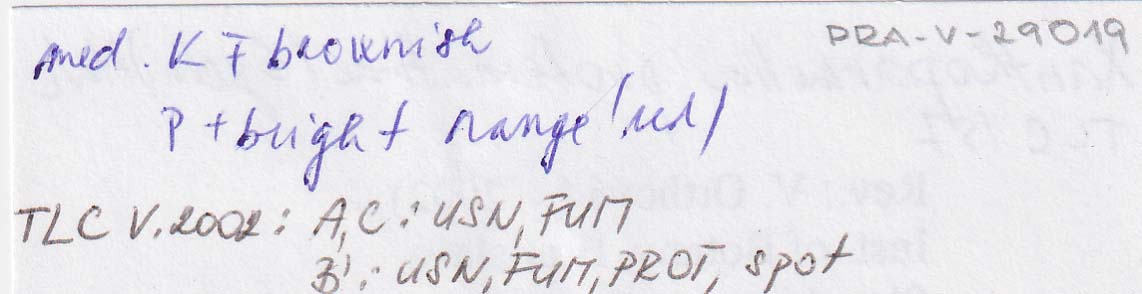 PRA-V-29019
med. K ∓ brownish
P + bright orange (red)
TLC V.2002: A, C: USN, FUM
B': USN, FUM, PROT, spot